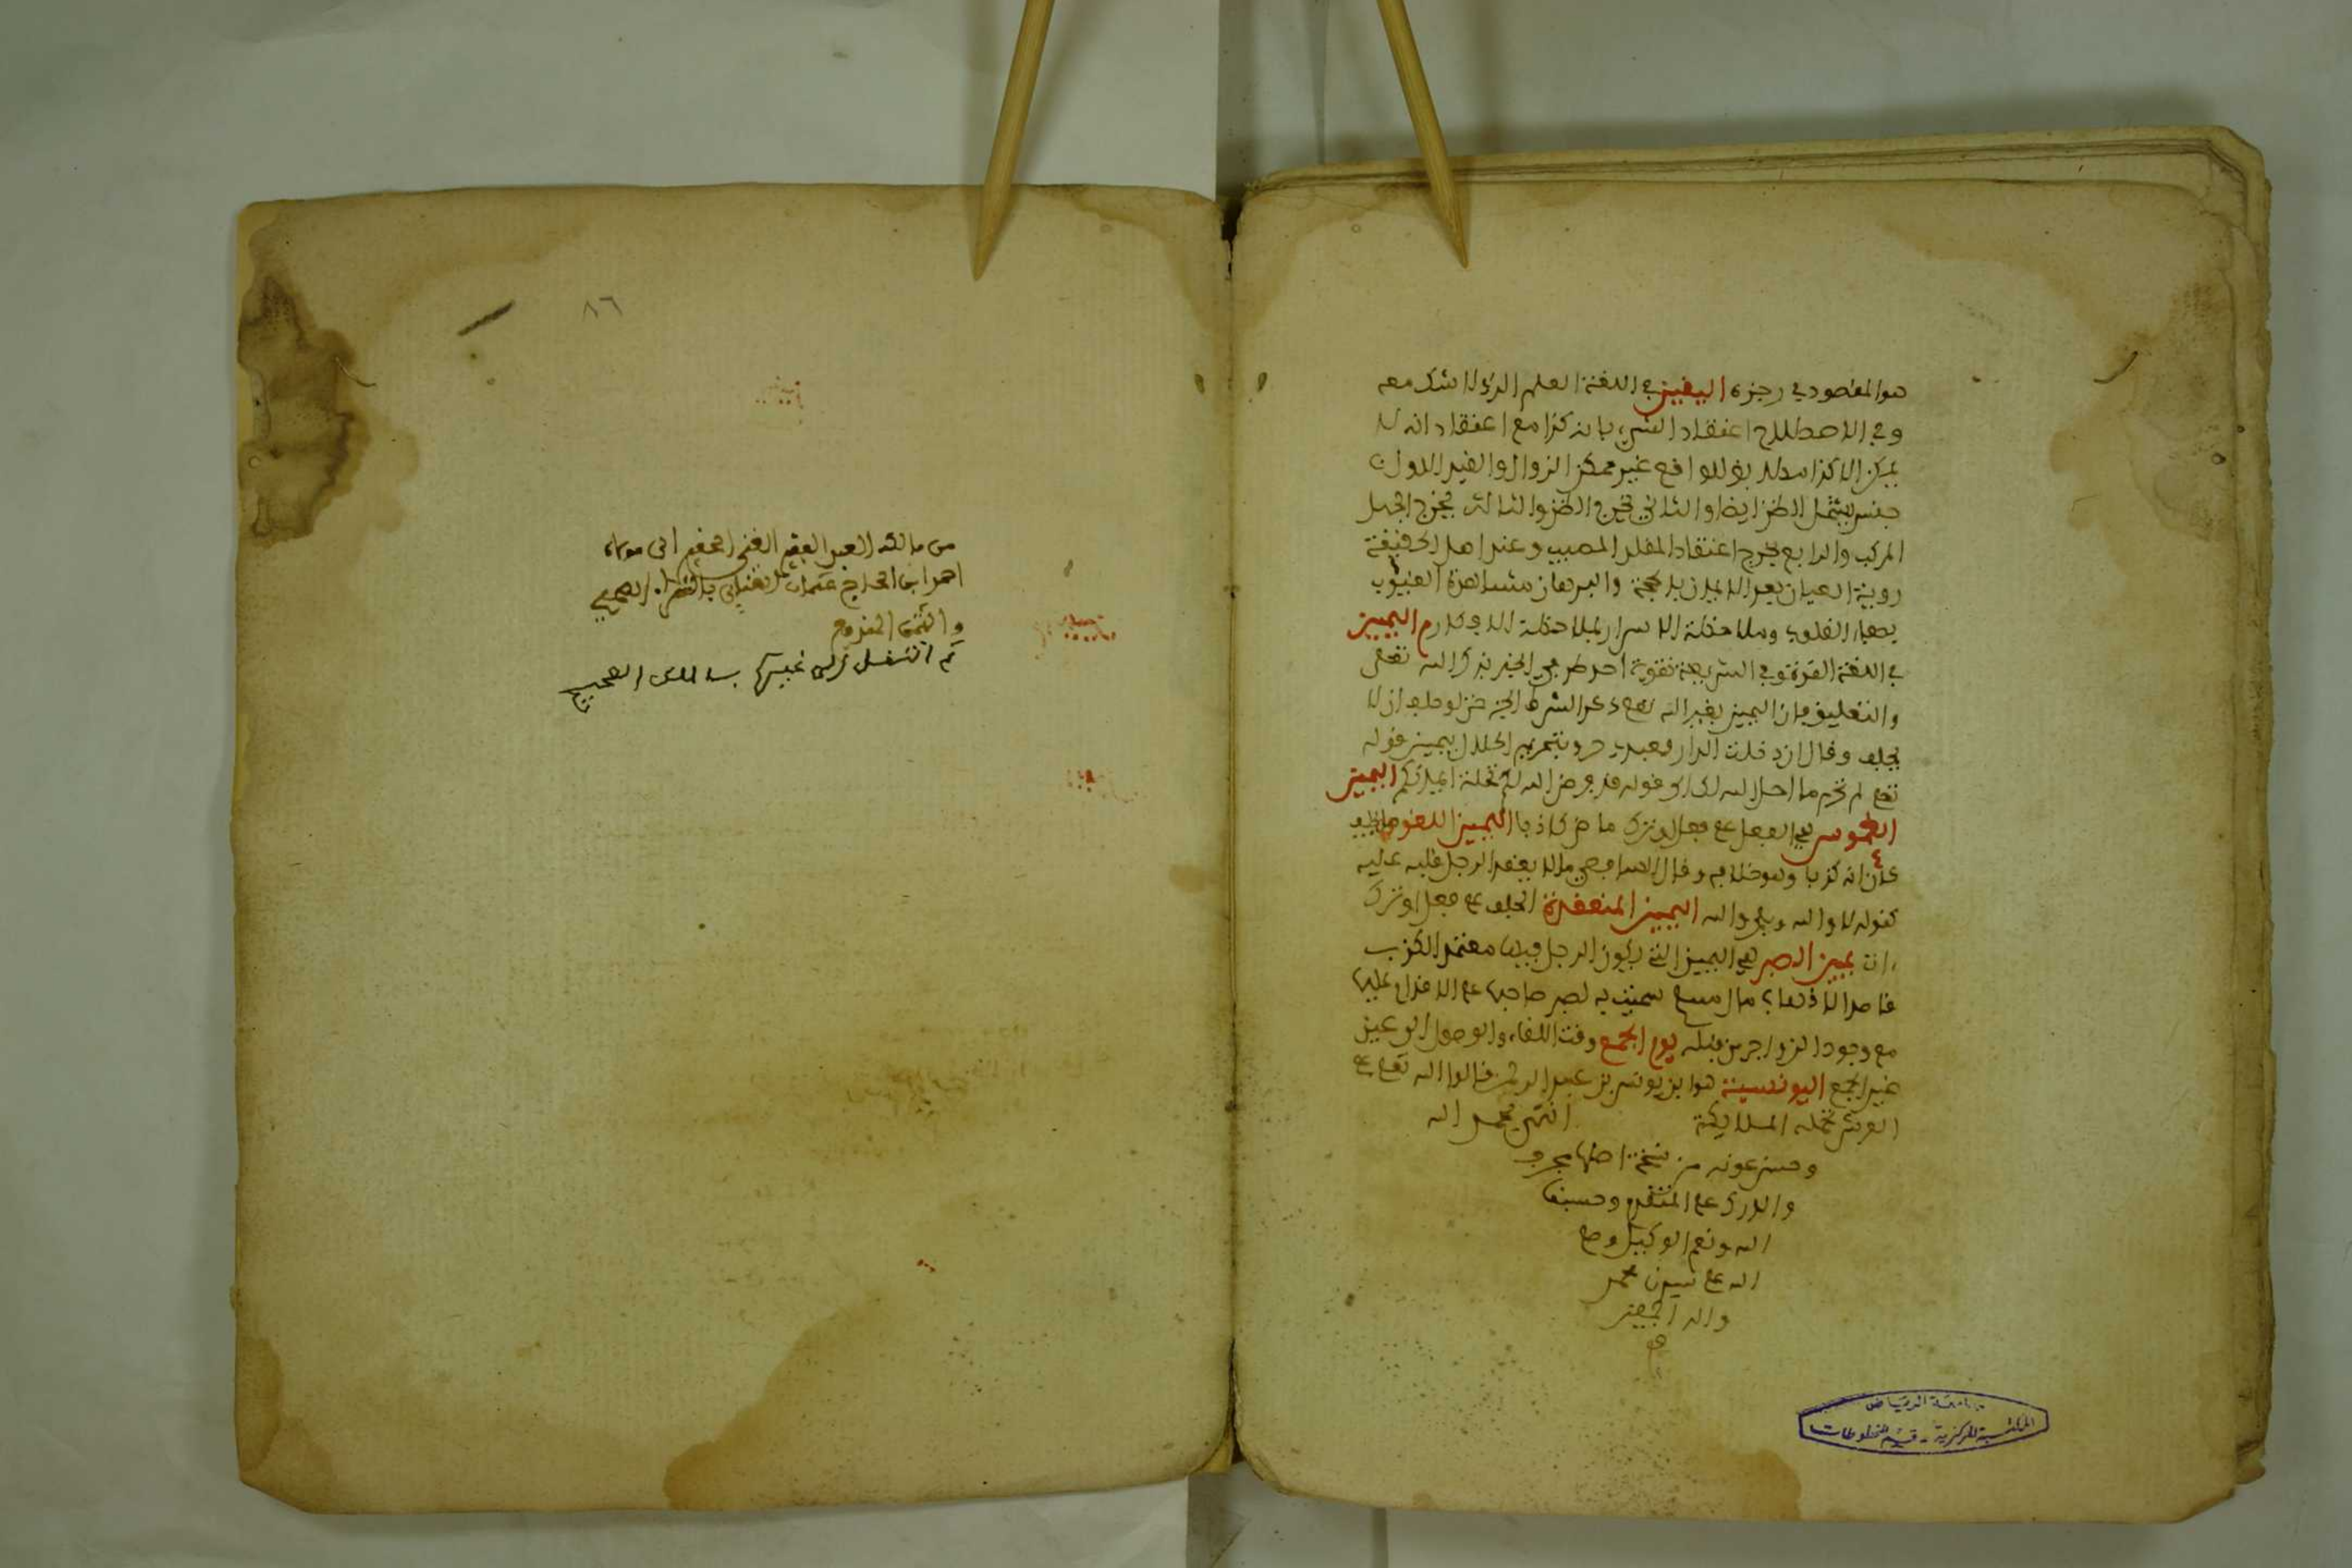 هو المقصود في رجزه اليقين في اللغة العلم الذي لا شك معه
وفي الاصطلاح اعتقاد الشيء بانه كذا مع اعتقاد انه لا
يمكن الا كذا مطابقا للواقع غير ممكن الزوال والقيد الاول
جنس يشمل الظن ايضا والثاني يخرج الظن والثالث يخرج الجهل
المركب والرابع يخرج اعتقاد المقلد المصيب وعند اهل الحقيقة
روية العيان بقوة الايمان لا بالحجة والبرهان مشاهدة الغيوب
بصفاء القلوب وملاحظة الاسرار بملاحظة الافكار اليمين
في اللغة القوة وفي الشريعة تقوية احد طرفي الخبر بذكر الله تعلى
والتعليق فان اليمين بغير الله تعلى ذكر الشرط الجزاء حتى لو حلف ان لا
يحلف وقال ان دخلت الدار فعبدي حر وبتحريم الحلال يمين قوله
تعلى لم تحرم ما احل الله لك الى قوله قد فرض الله لكم تحلة ايمانكم اليمين
الغموس هي الفعل على فعل او ترك ماض كاذبا اليمين اللغو ما يحلف
ظان انه كذا وهو خلافه وقال الشافعي ما لا يعقد الرجل قلبه عليه
كقوله لا والله وبلى والله اليمين المنعقدة الحلف على فعل او ترك
ءات يمين الصبر هي اليمين التي يكون الرجل فيها معتمد الكذب
قاصدا لاذهاب مال مسلم سميت به لصبر صاحبها على الاقدام عليها
مع وجود الزواجر من قبله يوم الجمع وقت اللقاء والوصول الى عين
عين الجمع اليونسية هو ابن يونس بن عبد الرحمن قالوا الله تعلى على
العرش تحمله الملايكة انتهى بحمد الله
وحسن عونه من نسخة اصلها محرف
والدرك على المتقدم وحسبنا
الله ونعم الوكيل وصلى
الله على سيدنا محمد
واله اجمعين
جامعة الرياض
المكتبة المركزية - قسم المخطوطات
٨٦
العبد الفقير الغني الى مولاه
احمد ابن الحاج عثمان بالشراء الصحيح
والثمن المدفوع
ثم انتقل الى غيره بالملك الصحيح